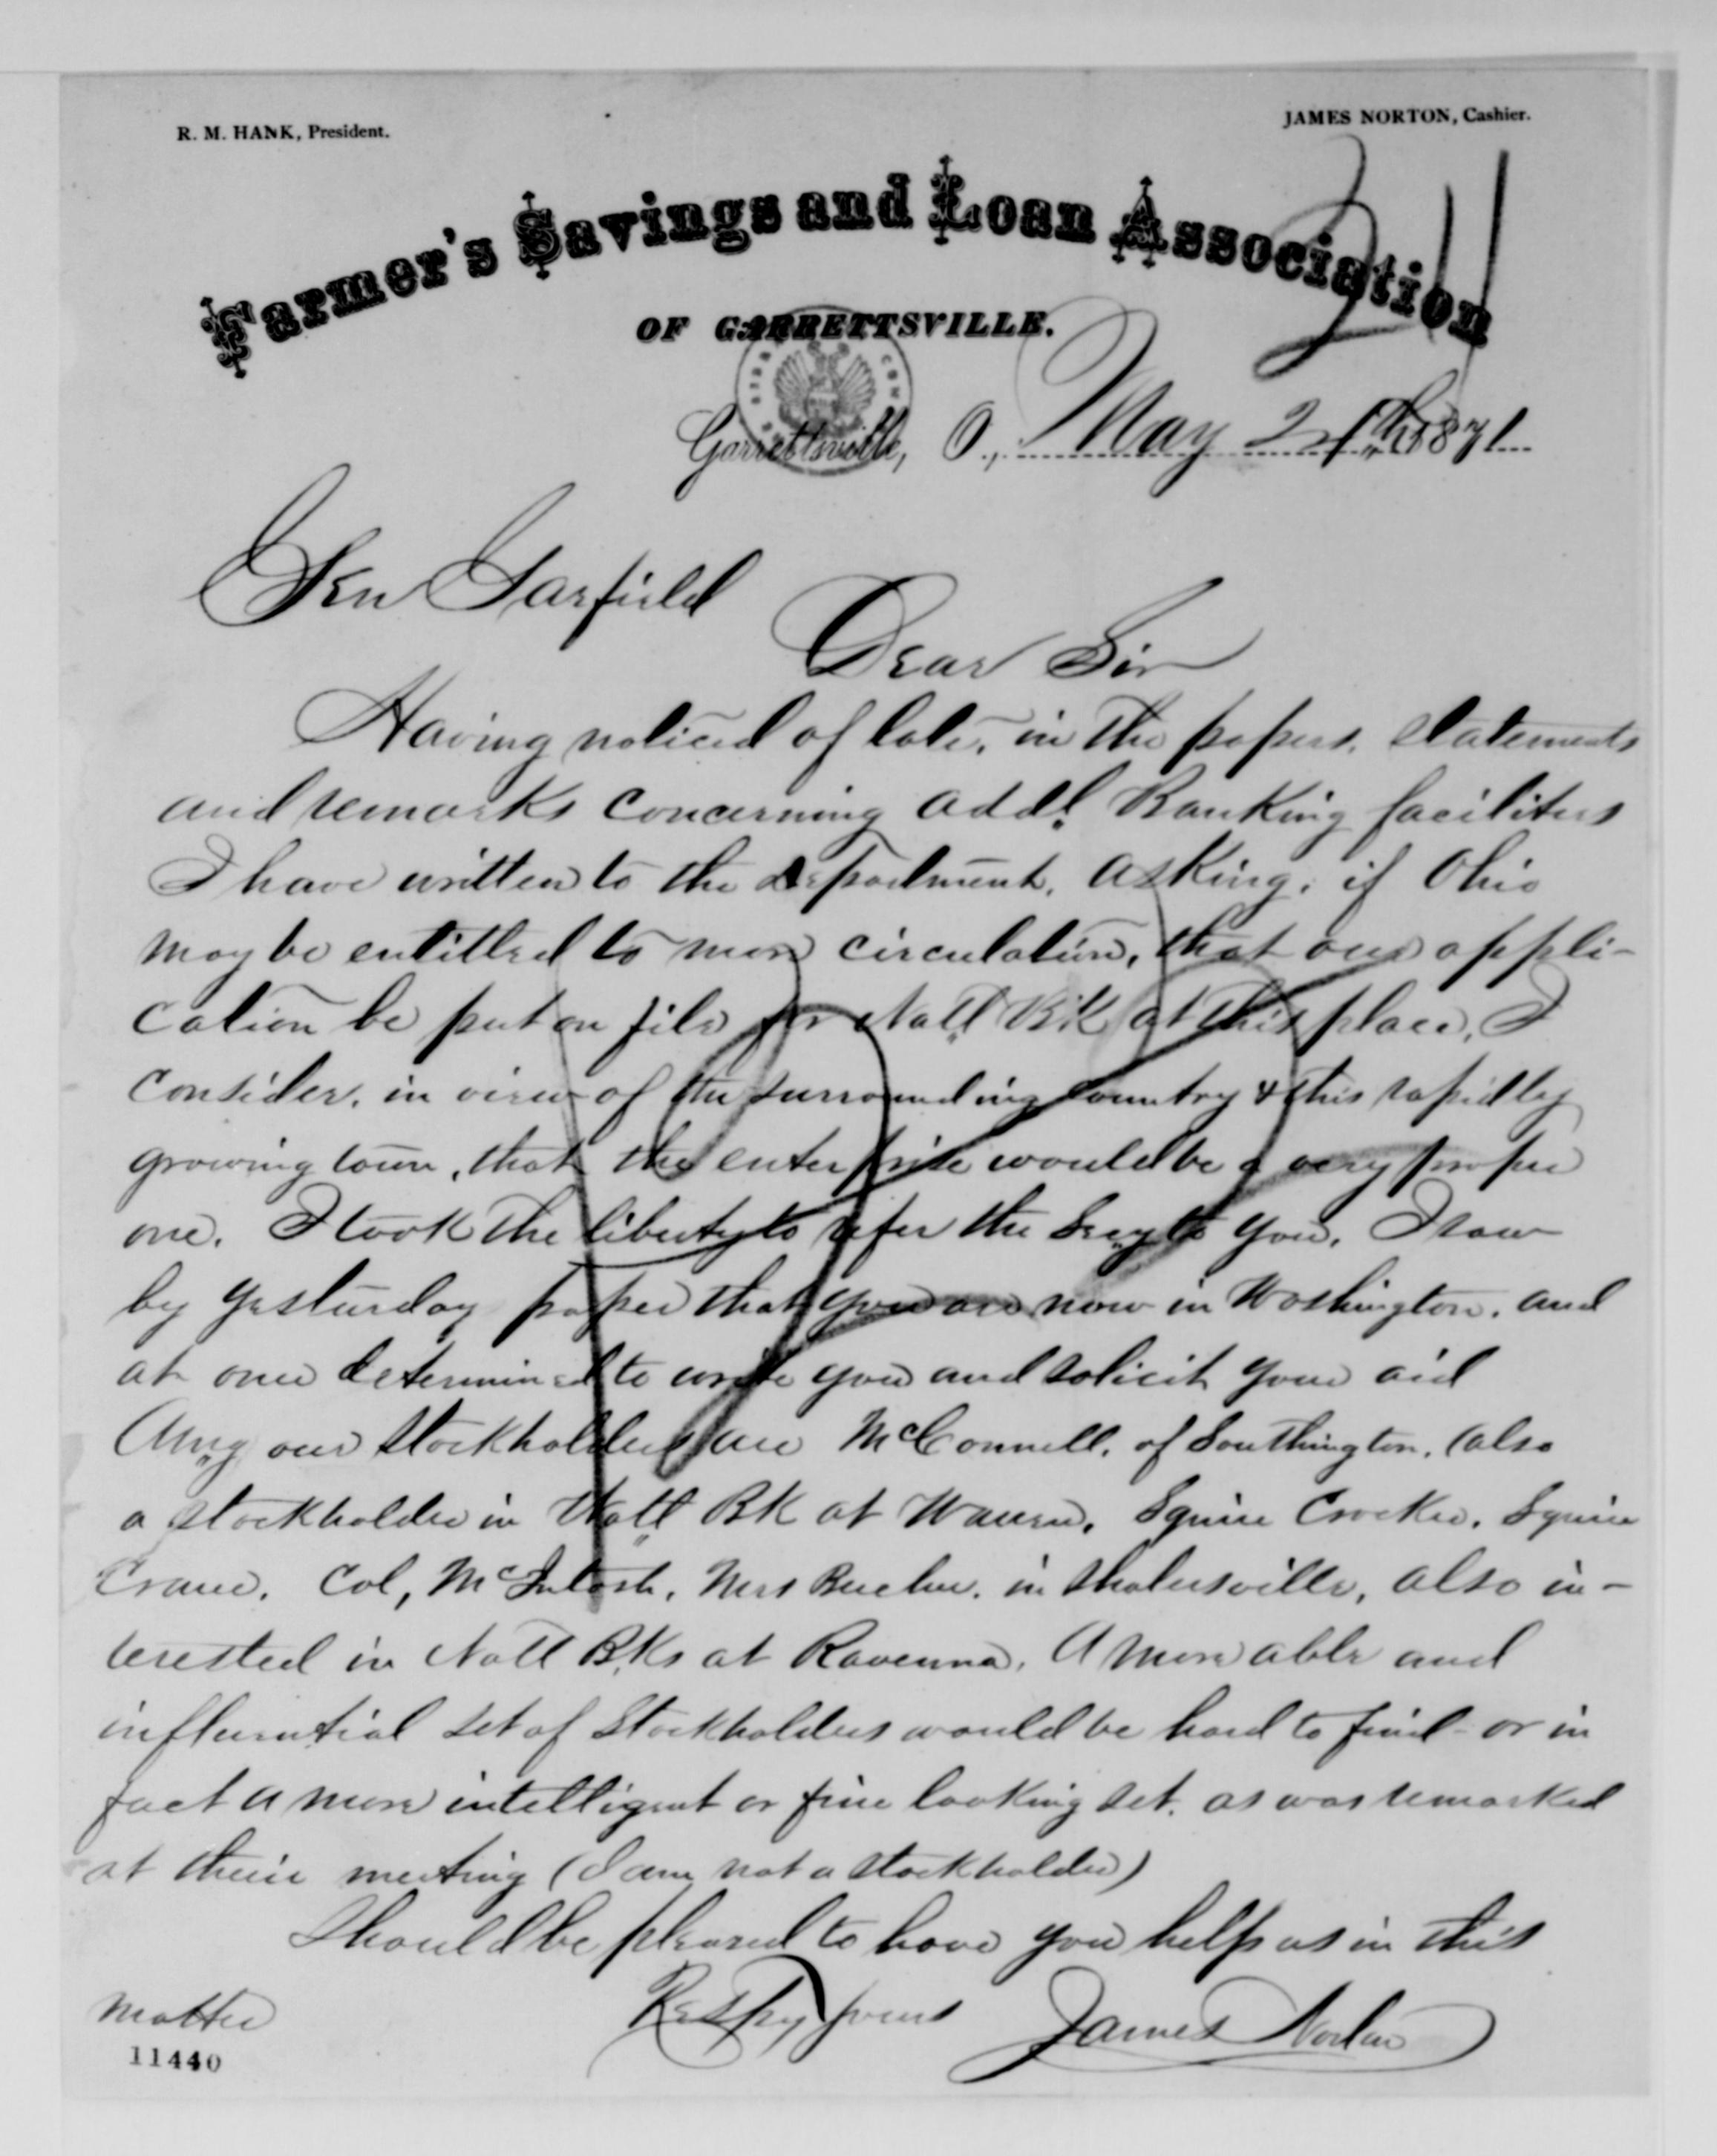 R. M. HANK, President.
JAMES NORTON, Cashier.
Farmer's Savings and Loan Association
OF GARRETTSVILLE.
Garrettsville, O., May 24th 1871
Gen Garfield
Dear Sir
Having noticed of late, in the papers, statements
and remarks concerning addl. Banking facilities
I have written to the department, asking, if Ohio
may be entitled to more circulation, that our appli-
cation be put on file for Natl Bk at this place, I
consider, in view of the surrounding country & this rapidly
growing town, that the enterprise would be a very proper
one. I took the liberty to refer the Secy to you. I saw
by yesturday paper that you are now in Washington, and
at once determined to write you and solicit your aid
Amg our stockholders are McConnell, of Southington, (also
a stockholder in Natl Bk at Warren, Squire Crocker, Squire
Crane, Col, McIntosh, Mrs in Shalersville, also in-
terested in Natl Bks at Ravenna. A more able and
influential set of Stockholders would be hard to find - or in
fact a more intelligent or fine looking set, as was remarked
at their meeting (I am not a stockholder)
Should be pleased to have you help us in this
matter
Respy yours James Norton
11440